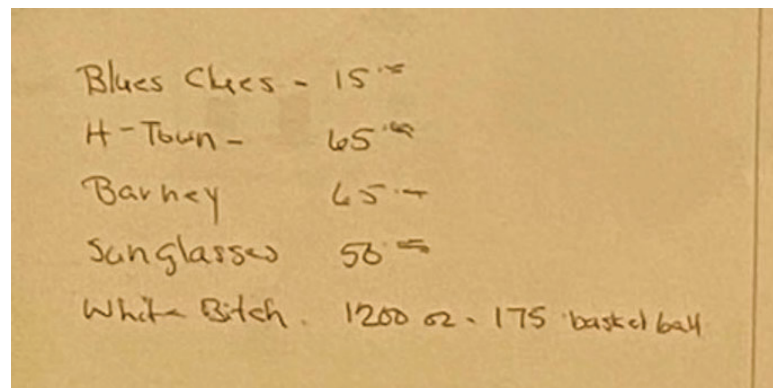 Blues Clues - 15.00
H-Town - 65.00
Barney 65.00
Sunglasses 50.00
White Bitch. 1200 oz - 175 basketball